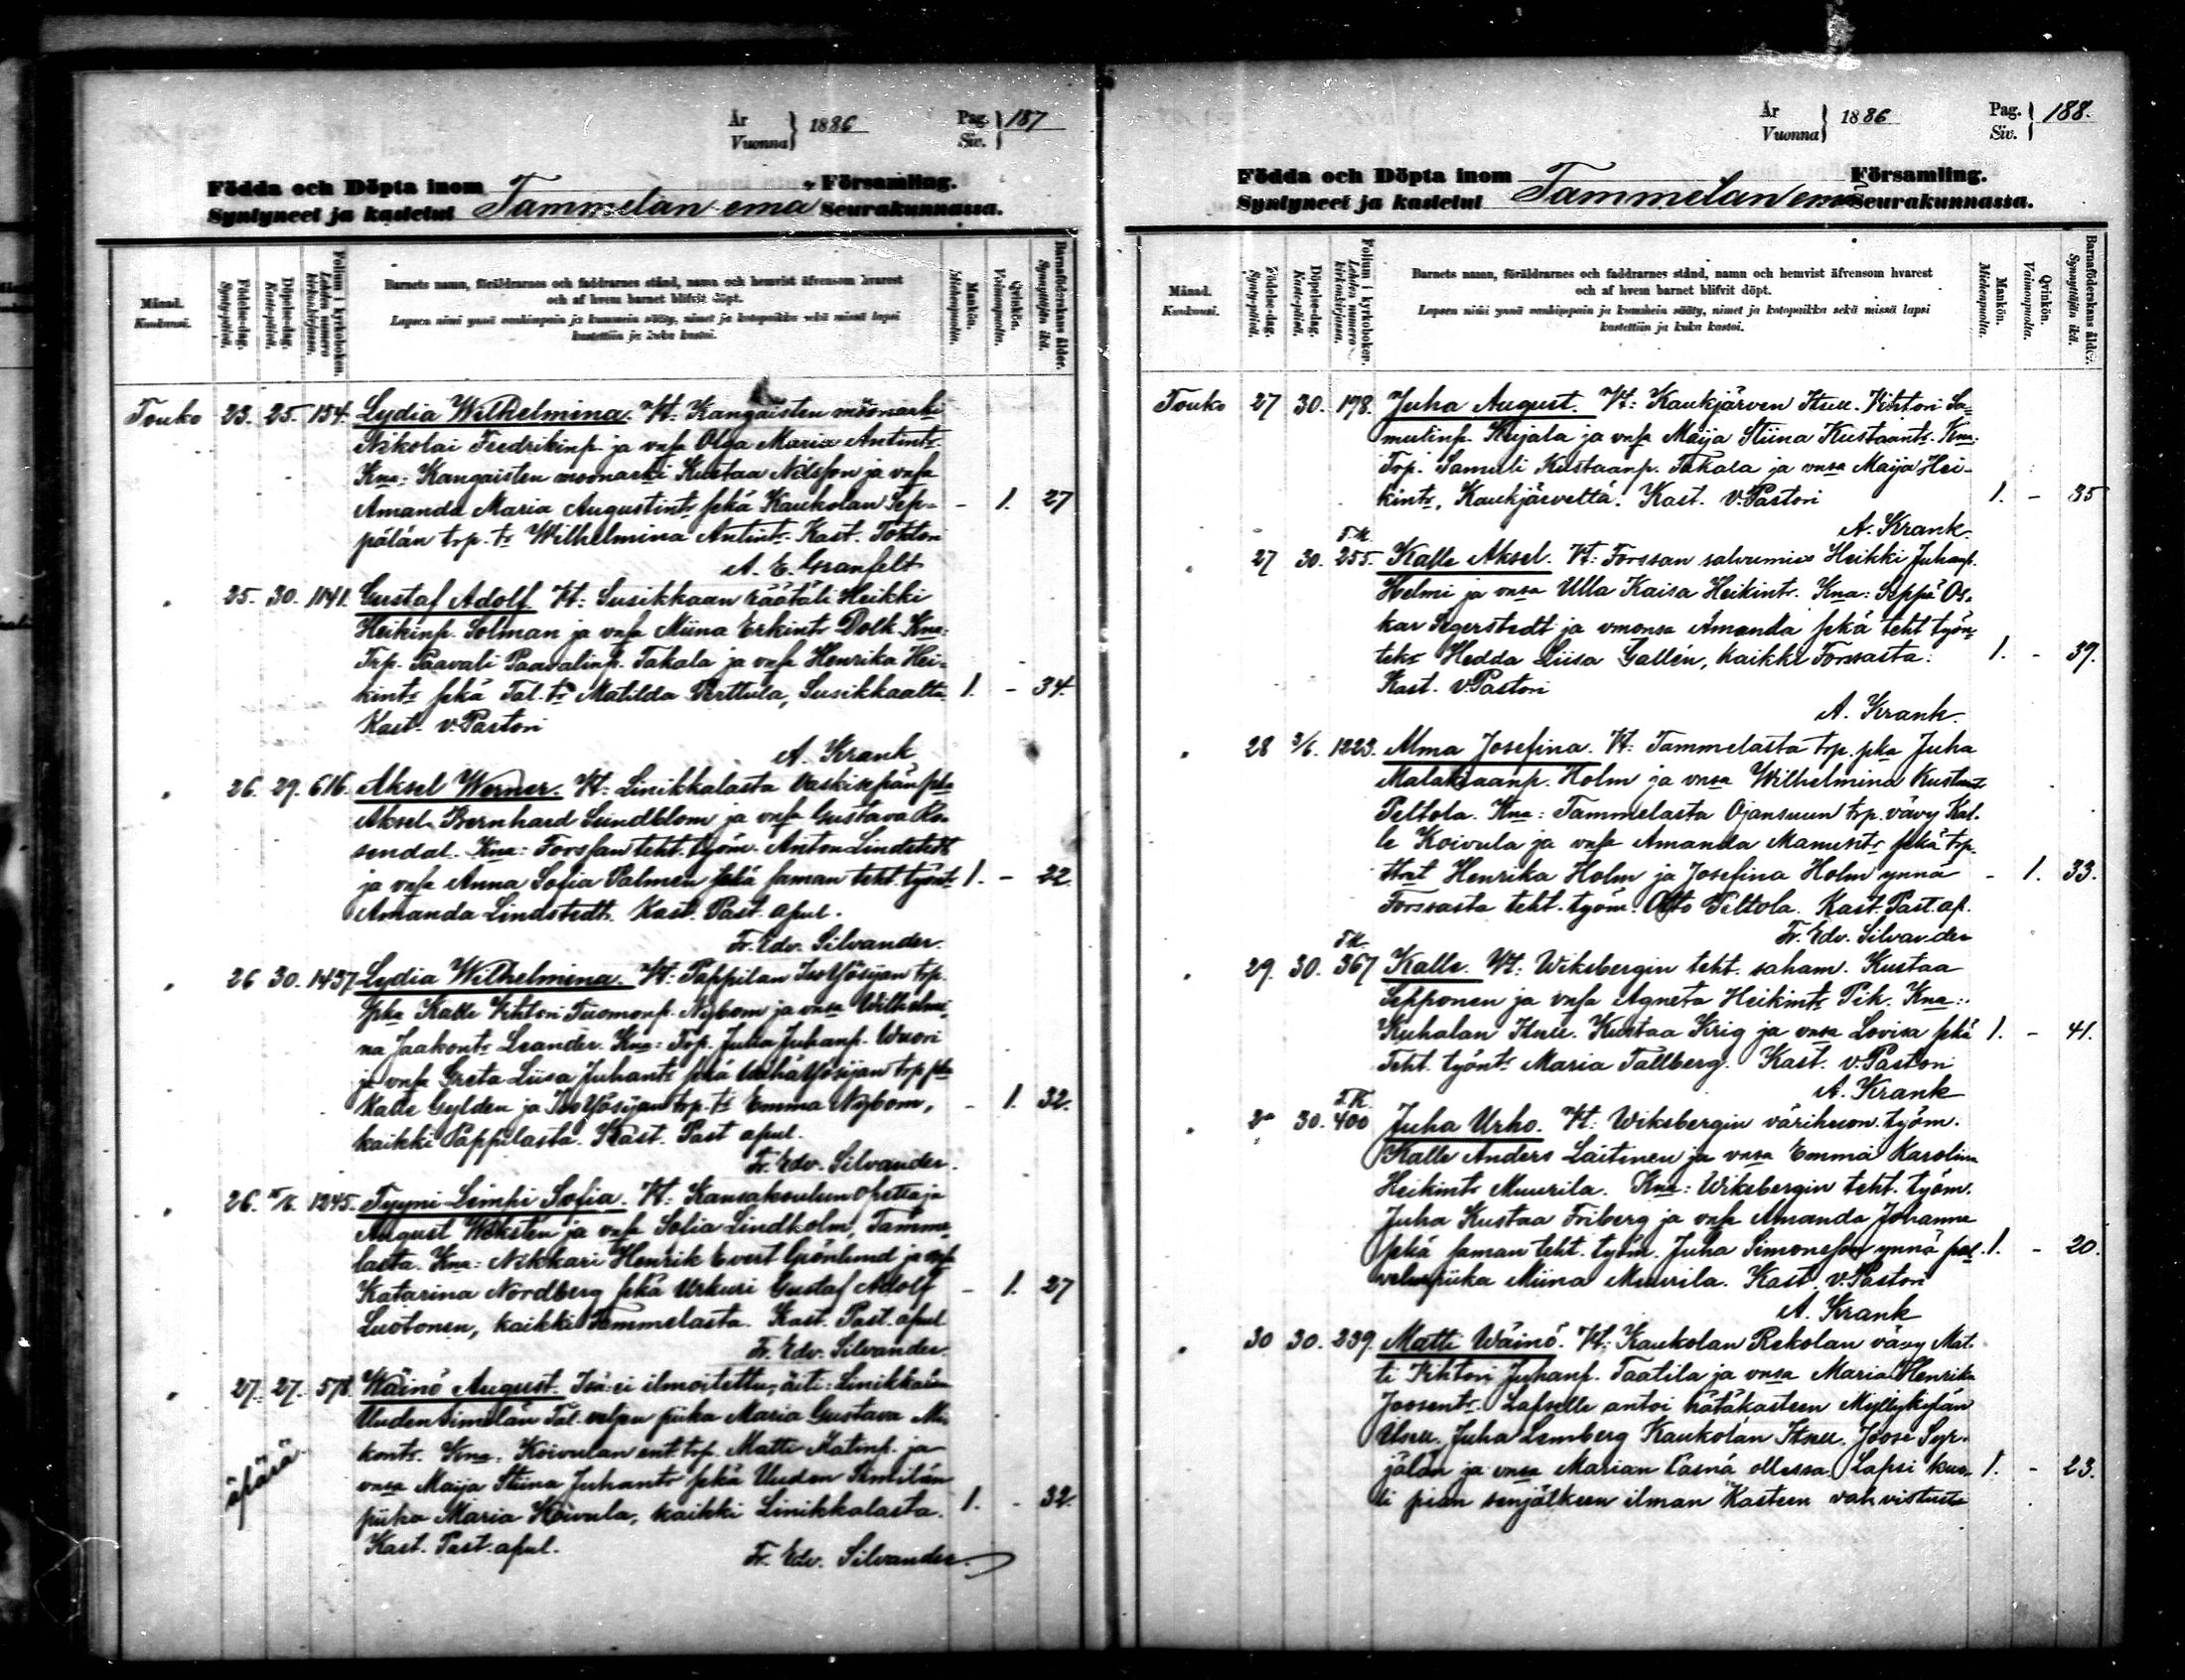 År
Vuonna } 1886
Pag.
Siv. } 187
Födda och Döpta inom
Församling.
Syntyneet ja kastetut Tammelan emä Seurakunnassa.
Månad.
Kuukausi.
Födelse-dag.
Synty-päivä.
Döpelse-dag.
Kaste-päivä.
Folium i kyrkoboken.
Lehden numero kirkonkirjassa.
Barnets namn, föräldrarnes och faddrarnes stånd, namn och hemvist äfvensom hvarest
och af hvem barnet blifvit döpt.
Lapsen nimi ynnä vanhimpain ja kummein sääty, nimet ja kotopaikka sekä missä lapsi
kastettiin ja kuka kastoi.
Mankön.
Miehenpuolta.
Qvinkön.
Vaimonpuolta.
Barnaföderskans ålder.
Synnyttäjän ikä.
Touko 23. 25. 154. Lydia Wilhelmina. Vt: Kangaisten möönarki
Nikolai Fredrikinp. ja vnsa Olga Maria Antintr.
Kna: Kangaisten moonarki Kustaa Nilsson ja vnsa
Amanda Maria Augustintr sekä Kaukolan Sep- - 1. 27
pälän trp. tr Wilhelmina Antintr. Kast. Tohtori
A. E. Granfelt
" 25. 30. 1141. Gustaf Adolf. Vt: Susikkaan räätäli Heikki
Heikinp. Solman ja vnsa Miina Erkintr Dolk. Kna:
Trp. Paavali Paavalinp. Takala ja vnsa Henrika Hei-
kintr sekä Tal. tr Matilda Perttula, Susikkaalta 1. - 34.
Kast. v. Pastori
A. Krank
" 26. 29. 616. Aksel Werner. Vt: Linikkalasta Vaskisepän
Aksel Bernhard Sundblom ja vnsa Gustava Ro-
sendal. Kna: Forssan teht. työm. Anton Lindstedt
ja vnsa Anna Sofia Palmen sekä saman teht. työntr 1. - 22.
Amanda Lindstedt. Kast. Past. apul.
Fr. Edv. Silvander.
" 26 30. 1437. Lydia Wilhelmina. Vt: Pappilan trp.
Kalle Vihtori Tuomonp. Nybom ja vnsa Wilhelmi-
na Jaakontr Leander. Kna: Trp. Juha Juhanp. Wuori
ja vnsa Greta Liisa Juhantr sekä
Kalle Gylden ja trp. tr Emma Nybom, - 1. 32.
kaikki Pappilasta. Kast. Past apul.
Fr. Edv. Silvander.
" 26. 1245. Tyyni Limpi Sofia. Vt: Kansakoulun Opettaja
August ja vnsa Sofia Lindholm, Tamme-
lasta. Kna: Nikkari Henrik Evert Grönlund ja vnsa
Katarina Nordberg sekä Urkuri Gustaf Adolf - 1. 27
Luotonen, kaikki Tammelasta. Kast. Past. apul
Fr. Edv. Silvander.
" 27. 27. 578. Wäinö August. Isä: ei ilmoitettu, äiti: Linikkalan
Uuden Simolan Tal. piika Maria Gustava Mi-
kontr. Kna: Koivulan ent. trp. Matti Matinp. ja
äpärä
vnsa Maija Stiina Juhantr sekä Uuden Similän
piika Maria Koivula, kaikki Linikkalasta. 1. - 32.
Kast. Past. apul.
Fr. Edv. Silvander.
År
Vuonna } 1886
Pag.
Siv. } 188.
Födda och Döpta inom
Församling.
Syntyneet ja kastetut Tammelan emä Seurakunnassa.
Månad.
Kuukausi.
Födelse-dag.
Synty-päivä.
Döpelse-dag.
Kaste-päivä.
Folium i kyrkoboken.
Lehden numero kirkonkirjassa.
Barnets namn, föräldrarnes och faddrarnes stånd, namn och hemvist äfvensom hvarest
och af hvem barnet blifvit döpt.
Lapsen nimi ynnä vanhimpain ja kummein sääty, nimet ja kotopaikka sekä missä lapsi
kastettiin ja kuka kastoi.
Mankön.
Miehenpuolta.
Qvinkön.
Vaimonpuolta.
Barnaföderskans ålder.
Synnyttäjän ikä.
Touko 27 30. 178. Juha August. Vt: Kaukjärven Itsell. Vihtori Sa-
mulinp. Kujala ja vnsa Maija Stiina Kustaantr. Kna:
Trp. Samuli Kustaanp. Takala ja vnsa Maija Hei-
kintr, Kaukjärveltä. Kast. v. Pastori 1. - 35
A. Krank.
T.K.
" 27 30. 255. Kalle Aksel. Vt: Forssan salvumies Heikki Juhanp.
Helmi ja vnsa Ulla Kaisa Heikintr. Kna: Seppä Os-
kar Segerstedt ja vmonsa Amanda sekä teht työn-
tek. Hedda Liisa Gallén, kaikki Forssasta. 1. - 39.
Kast. v. Pastori
A. Krank.
" 28 3/6. 1223. Alma Josefina. Vt: Tammelasta trp. pka Juha
Malakiaanp. Holm ja vnsa Wilhelmina Kustaantr
Peltola. Kna: Tammelasta Ojansuun trp. vävy Kal-
le Koivula ja vnsa Amanda Manuntr sekä trp.
ttret Henrika Holm ja Josefina Holm ynnä - 1. 33.
Forssasta teht. työm. Otto Peltola. Kast. Past. ap.
Fr. Edv. Silvander
T.K.
" 29. 30. 367 Kalle. Vt: Wiksbergin teht. saham. Kustaa
Sepponen ja vnsa Agneta Heikintr Pik. Kna:
Kuhalan Itsell. Kustaa Krig ja vnsa Lovisa sekä 1. - 41.
Teht. työntr Maria Tallberg. Kast. v. Pastori
A. Krank
T.K.
" 30. 400 Juha Urho. Vt: Wiksbergin värihuon. työm.
Kalle Anders Laitinen ja vnsa Emma Karolina
Heikintr Muurila. Kna: Wiksbergin teht. työm.
Juha Kustaa Friberg ja vnsa Amanda Johanna
sekä saman teht. työm. Juha Simonsson ynnä pal- 1. - 20.
veluspiika Miina Muurila. Kast. v. Pastori
A. Krank
" 30 30. 239. Matti Wäinö. Vt: Kaukolan Rekolan vävy Mat-
ti Vihtori Juhanp. Taatila ja vnsa Maria Henrika
Joosentr. Lapselle antoi hätäkasteen Myllykylän
Itsell. Juha Lemberg Kaukolan Itsell. Joose Syr-
jälän ja vnsa Marian läsnä ollessa. Lapsi kuo- 1. - 23.
li pian senjälkeen ilman Kasteen vahvistusta